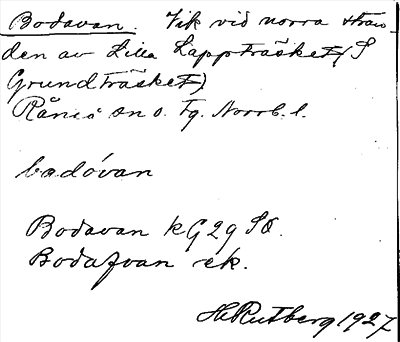 Bodavan. Vik vid norra stran-
den av Lilla Lappträsket (S
Grundträsket)
Råneå sn o. tg. Norrb. l.
badóvan
Bodavan kG 29 SO.
Bodafvan ek.
H Rutberg 1927